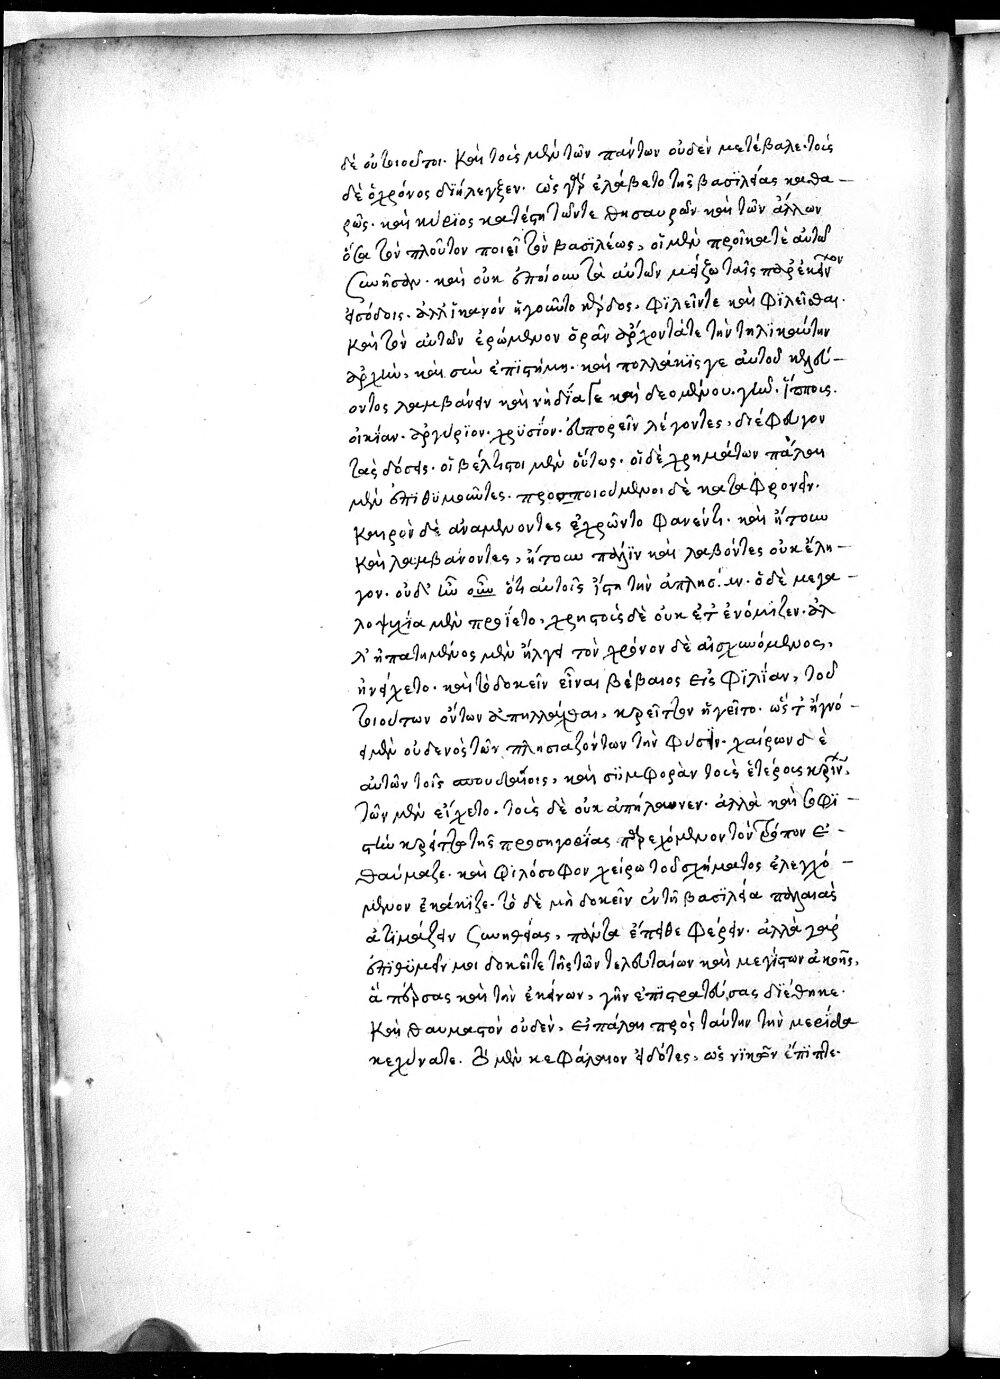 δὲ οὐ τοιοῦτοι. καὶ τοὺς μὲν τῶν πάντων οὐδὲν μετέβαλε. τοὺς
δὲ ὁ χρόνος διήλεγξεν. ὡς γὰρ ἐλάβετο τῆς βασιλείας καθα-
ρῶς. καὶ κύριος κατέστη τῶν τε θησαυρῶν καὶ τῶν ἄλλων
ὅσα τὸν πλοῦτον ποιεῖ τὸν βασιλέως, οἱ μὲν προῖκα τὲ αὐτῶ
ξυνῆσαν. καὶ οὐκ ἐποίουν τὰ αὐτῶν μείζω ταῖς παρ' ἐκείνου
εἰσόδοις. ἀλλ' ἱκανὸν ἡγοῦντο κέρδος, φιλεῖν τε καὶ φιλεῖσθαι.
καὶ τὸν αὐτῶν ἐρώμενον ὁρᾶν ἄρχοντά τε τὴν τηλικαύτην
ἀρχὴν, καὶ σὺν ἐπιστήμη. καὶ πολλάκις γε αὐτοῦ κελεύ-
οντος λαμβάνειν καὶ νὴ δία γε καὶ δεομένου. γῆν. ἵππους.
οἰκίαν. ἀργύριον. χρυσίον. εὐπορεῖν λέγοντες, διέφευγον
τὰς δόσεις. οἱ βέλτιστοι μὲν οὕτως. οἱ δὲ χρημάτων πάλαι
μὲν ἐπιθυμοῦντες. προσποιούμενοι δὲ καταφρονεῖν.
καιρὸν δὲ ἀναμένοντες ἐχρῶντο φανέντι. καὶ ἤτουν
καὶ λαμβάνοντες, ἤτουν πάλιν καὶ λαβόντες οὐκ ἔλη-
γον. οὐδ' ἦν οὖν ὅτι αὐτοῖς ἵστη τὴν ἀπλησ ν. ὁ δὲ μεγα-
λοψυχία μὲν προΐετο, χρηστοὺς δὲ οὐκ ἔτ' ἐνόμιζεν. ἀλ
λ' ἠπατημένος μὲν ἤλγει τὸν χρόνον δὲ αἰσχυνόμενος,
ἠνείχετο. καὶ τὸ δοκεῖν εἶναι βέβαιος εἰς φιλίαν, τοῦ
τοιούτων ὄντων ἀπηλλάχθαι, κρεῖττον ἡγεῖτο. ὥστ' ἠγνό-
ει μὲν οὐδενὸς τῶν πλησιαζόντων τὴν φύσιν. χαίρων δὲ
αὐτῶν τοῖς σπουδαίοις, καὶ συμφορὰν τοὺς ἑτέρους κρίνων,
τῶν μὲν εἴχετο. τοὺς δὲ οὐκ ἀπήλαυνεν. ἀλλὰ καὶ σοφι-
στὴν κρείττω τῆς προσηγορίας παρεχόμενον τὸν τρόπον ἐ-
θαύμαζε. καὶ φιλόσοφον χείρω τοῦ σχήματος ἐλεγχό-
μενον ἐκάκιζε. τὸ δὲ μὴ δοκεῖν ἐν τῆ βασιλεία παλαιὰς
ἀτιμάζειν ξυνηθείας, πάντα ἔπειθε φέρειν. ἀλλὰ γὰρ
ἐπιθυμεῖν μοι δοκεῖτε τῆς τῶν τελευταίων καὶ μεγίστων ἀκοῆς,
ἃ πέρσας καὶ τὴν ἐκείνων, γῆν ἐπιστρατεύσας διέθηκε.
καὶ θαυμαστὸν οὐδὲν, εἰ πάλαι πρὸς ταύτην τὴν μερίδα
κεχήνατε. τὸ μὲν κεφάλαιον εἰδότες, ὡς νικῶν ἔπιπτε.